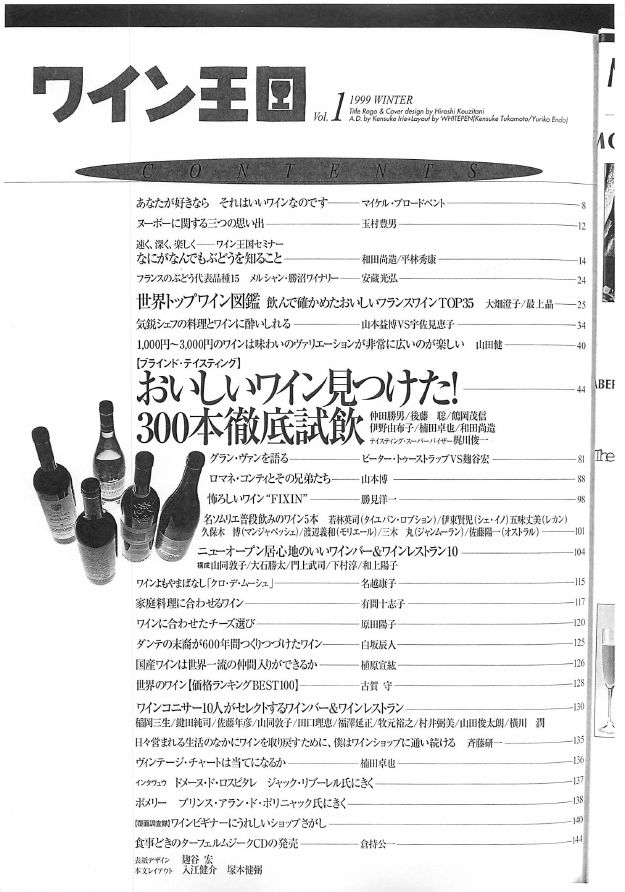 ワイン王国
Vol.1 1999 WINTER
Title Rogo & Cover design by Hiroshi Kouzitani
A.D. by Kensuke Irie+Layout by WHITEPEN(Kensuke Tukamoto/Yuriko Endo)
CONTENTS
あなたが好きなら それはいいワインなのです マイケル・ブロードベント 8
ヌーボーに関する三つの思い出 玉村豊男 12
速く、深く、楽しく——ワイン王国セミナー
なにがなんでもぶどうを知ること 和田尚造/平林秀康 14
フランスのぶどう代表品種15 メルシャン・勝沼ワイナリー 安蔵光弘 24
世界トップワイン図鑑 飲んで確かめたおいしいフランスワインTOP35 大畑澄子/最上晶 25
気鋭シェフの料理とワインに酔いしれる 山本益博VS宇佐見恵子 34
1,000円〜3,000円のワインは味わいのヴァリエーションが非常に広いのが楽しい 山田健 40
【ブラインド・テイスティング】
おいしいワイン見つけた! 44
300本徹底試飲 仲田勝男/後藤 聡/鶴岡茂信
伊野由布子/楠田卓也/和田尚造
テイスティング・スーパーバイザー 梶川俊一
グラン・ヴァンを語る ピーター・トゥーストラップVS麹谷宏 81
ロマネ・コンティとその兄弟たち 山本博 88
怖ろしいワイン“FIXIN” 勝見洋一 98
名ソムリエ普段飲みのワイン5本 若林英司(タイユバン・ロブション)/伊東賢児(シェ・イノ)五味丈美(レカン)
久保木 博(マンジャペッシェ)/渡辺義和(モリエール)/三木 丸(ジャンムーラン)/佐藤陽一(オストラル) 101
ニューオープン居心地のいいワインバー&ワインレストラン10 104
構成 山同敦子/大石勝太/門上武司/下村淳/和上陽子
ワインよもやまばなし「クロ・デ・ムーシュ」 名越康子 115
家庭料理に合わせるワイン 有間十志子 117
ワインに合わせたチーズ選び 原田陽子 120
ダンテの末裔が600年間つくりつづけたワイン 白坂辰人 125
国産ワインは世界一流の仲間入りができるか 植原宣紘 126
世界のワイン【価格ランキングBEST100】 古賀 守 128
ワインコニサー10人がセレクトするワインバー&ワインレストラン 130
稲岡三生/鍵田純司/佐藤年彦/山同敦子/田口理恵/福澤延正/牧元裕之/村井弼美/山田俊太朗/横川 潤
日々営まれる生活のなかにワインを取り戻すために、僕はワインショップに通い続ける 斉藤研一 135
ヴィンテージ・チャートは当てになるか 楠田卓也 136
インタヴュウ ドメーヌ・ド・ロスピタレ ジャック・リブーレル氏にきく 137
ポメリー プリンス・アラン・ド・ポリニャック氏にきく 138
【覆面調査隊】ワインビギナーにうれしいショップさがし 140
食事どきのターフェルムジークCDの発売 倉持公一 144
表紙デザイン 麹谷 宏
本文レイアウト 入江健介 塚本健弼